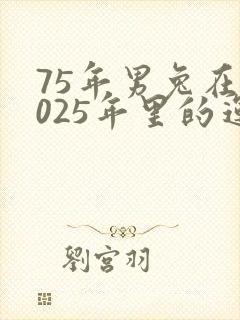 75年男兔在
025年里的运
劉宫羽